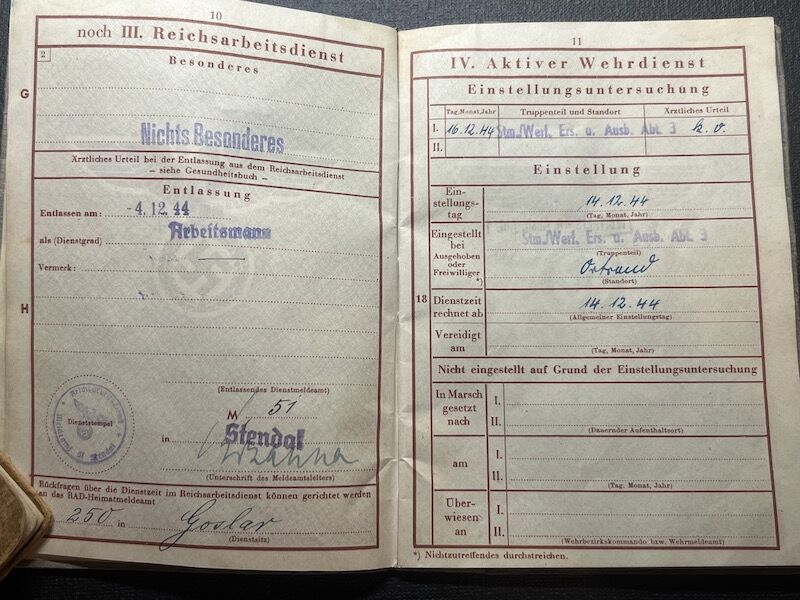 10
noch III. Reichsarbeitsdienst
2
Besonderes
G
Nichts Besonderes
Ärztliches Urteil bei der Entlassung aus dem Reichsarbeitsdienst
– siehe Gesundheitsbuch –
Entlassung
Entlassen am: -4.12.44
als (Dienstgrad) Arbeitsmann
Vermerk:
H
(Entlassendes Dienstmeldeamt)
M 51
Dienststempel
in Stendal
(Unterschrift des Meldeamtsleiters)
Rückfragen über die Dienstzeit im Reichsarbeitsdienst können gerichtet werden
an das RAD-Heimatmeldeamt
250 in Goslar
(Dienstsitz)
11
IV. Aktiver Wehrdienst
Einstellungsuntersuchung
Tag, Monat, Jahr Truppenteil und Standort Ärztliches Urteil
I. 16.12.44 Stm./Werf. Ers. u. Ausb. Abt. 3 k.v.
II.
Einstellung
Ein-
stellungs-
tag
14.12.44
(Tag, Monat, Jahr)
Eingestellt
bei
Ausgehoben
oder
Freiwilliger
*)
Stm./Werf. Ers. u. Ausb. Abt. 3
(Truppenteil)
Ortrand
(Standort)
18
Dienstzeit
rechnet ab
14.12.44
(Allgemeiner Einstellungstag)
Vereidigt
am
(Tag, Monat, Jahr)
Nicht eingestellt auf Grund der Einstellungsuntersuchung
In Marsch
gesetzt
nach
I.
II.
(Dauernder Aufenthaltsort)
am
I.
II.
(Tag, Monat, Jahr)
Über-
wiesen
an
I.
II.
(Wehrbezirkskommando bzw. Wehrmeldeamt)
*) Nichtzutreffendes durchstreichen.